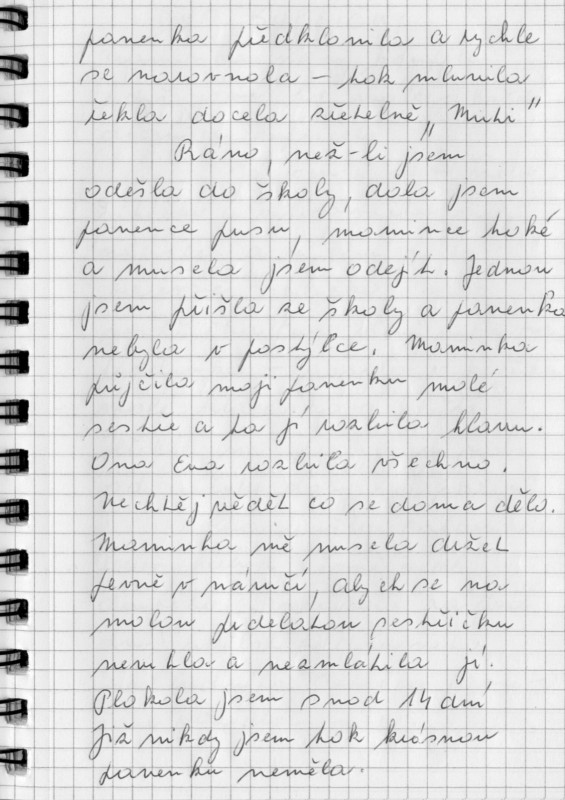 panenka předklonila a rychle
se narovnala – tak mluvila
řekla docela zřetelně „Muti"
Ráno, než-li jsem
odešla do školy, dala jsem
panence pusu, mamince také
a musela jsem odejít. Jednou
jsem přišla ze školy a panenka
nebyla v postýlce. Maminka
půjčila moji panenku malé
sestře a ta jí rozbila hlavu.
Ona Eva rozbila všechno.
Nechtěj vědět co se doma dělo.
Maminka mě musela držet
pevně v náručí, abych se na
malou pdelatou sestřičku
nevrhla a nezmlátila jí.
Plakala jsem snad 14 dní
Již nikdy jsem tak krásnou
panenku neměla.